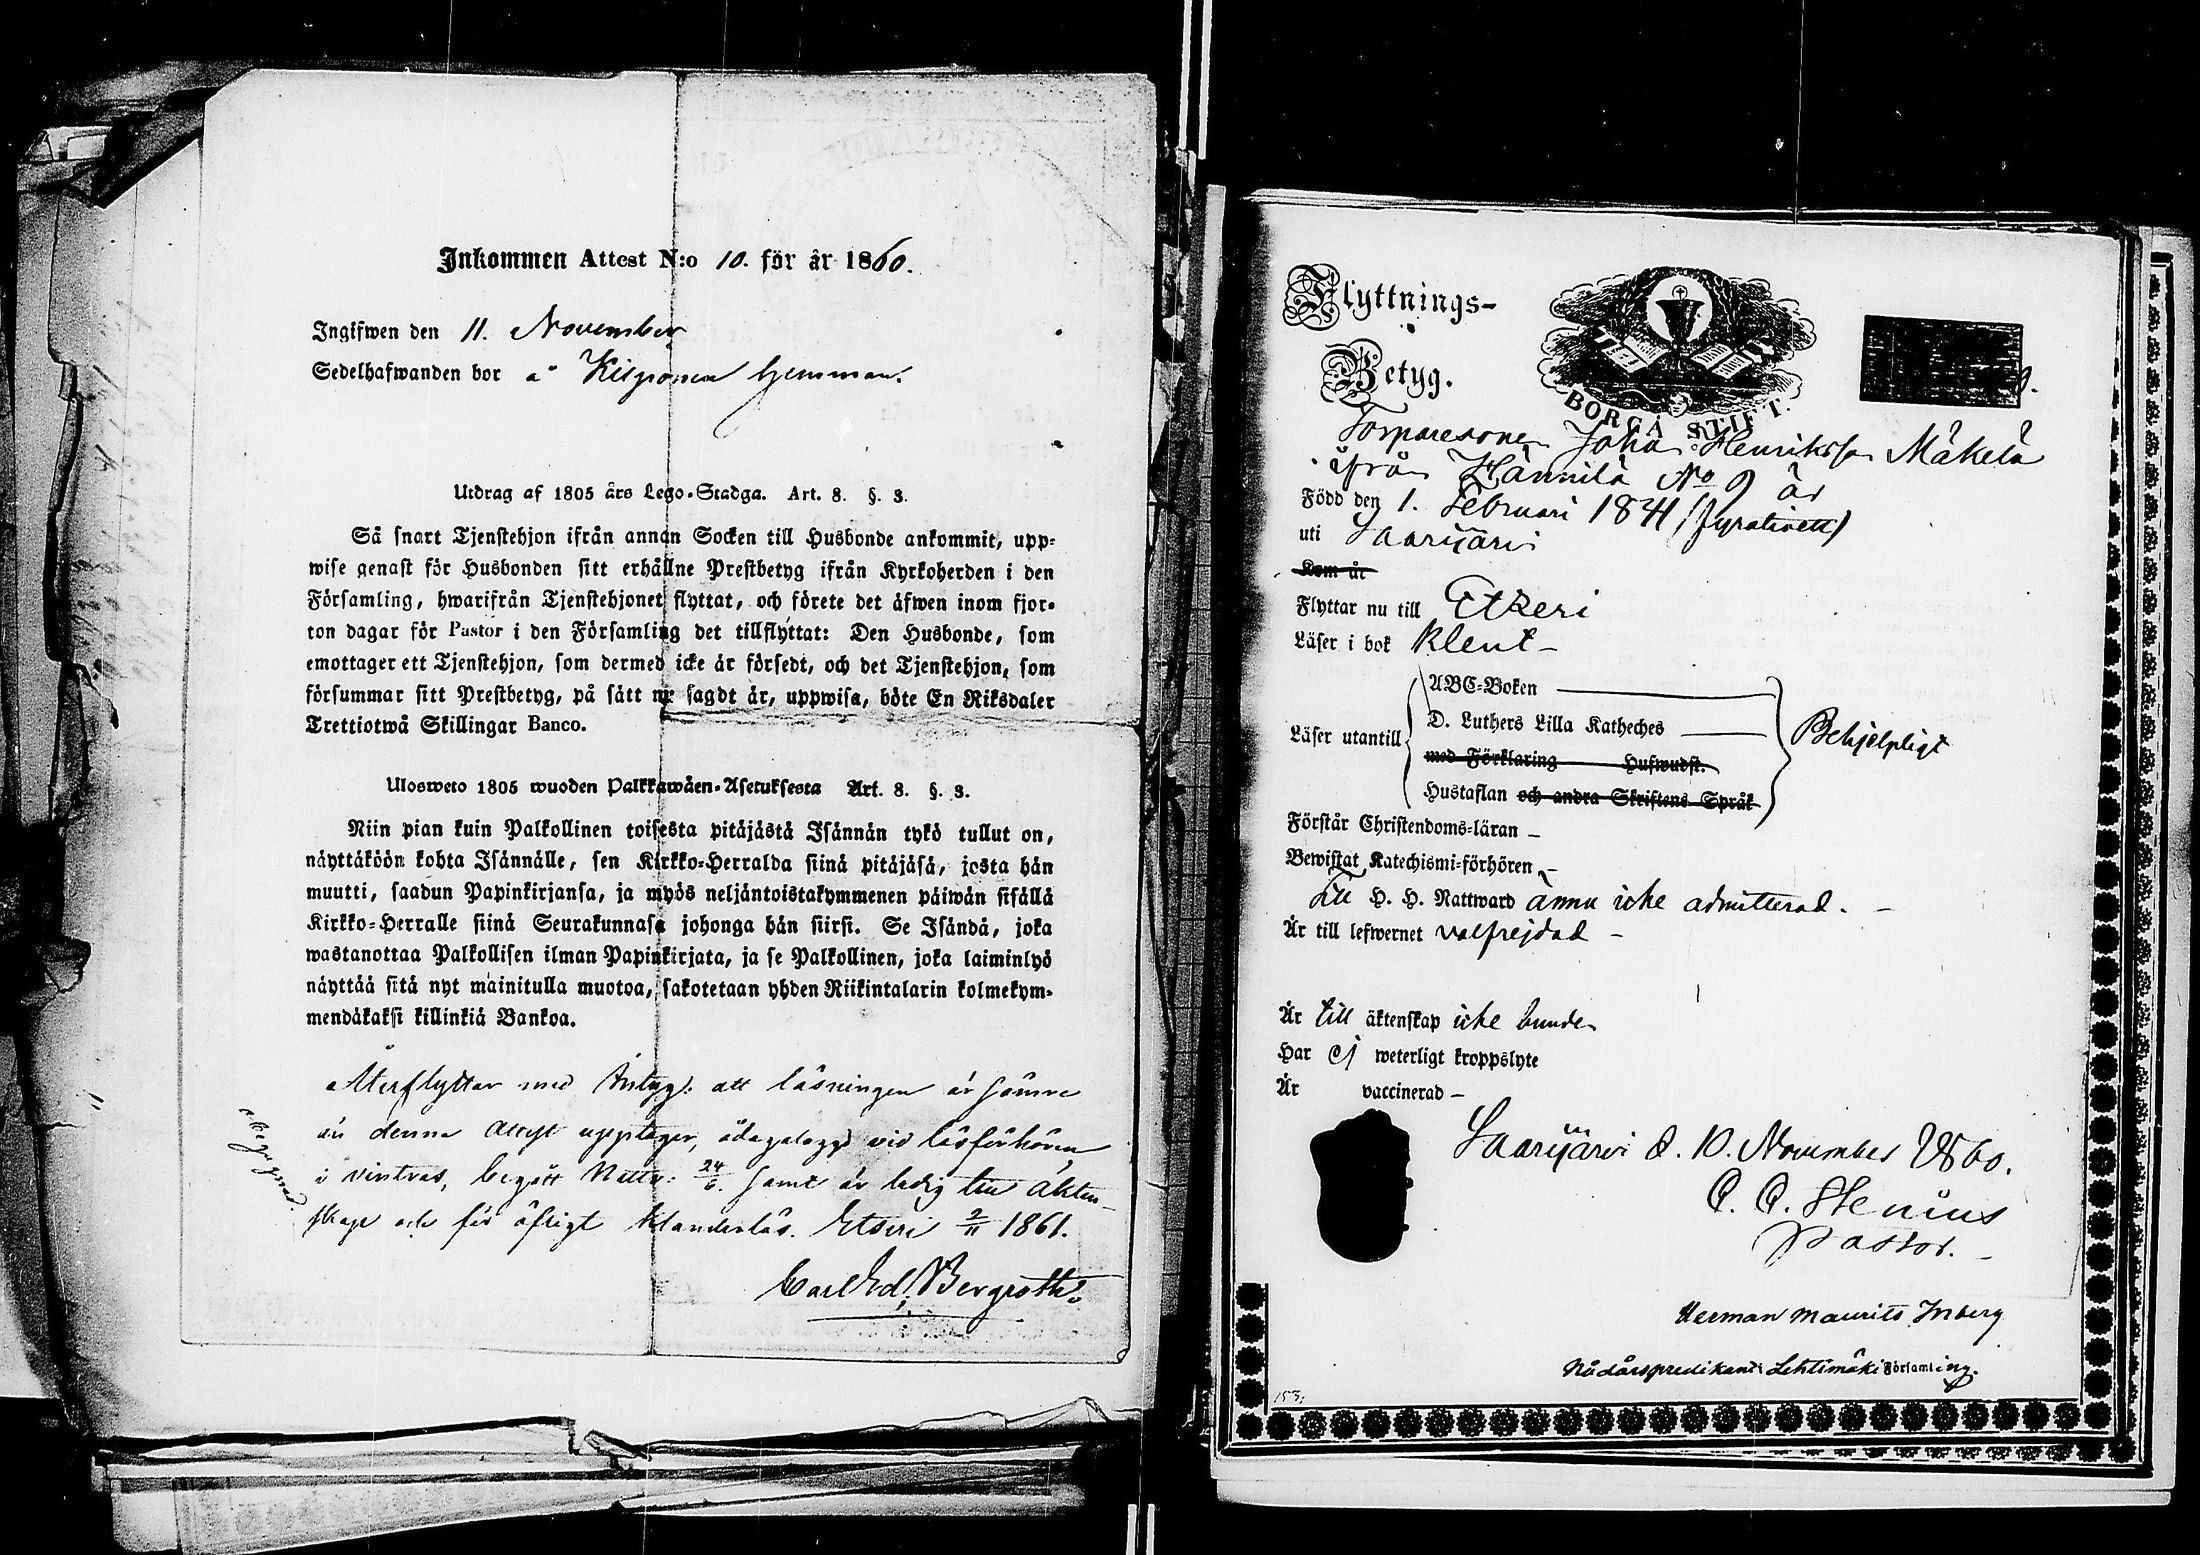 Inkommen Attest N:o 10. för år 1860.
Ingifwen den 11. November
Sedelhafwanden bor å hemman.
Utdrag af 1805 års Lego-Stadga. Art. 8. §. 3.
Så snart Tjenstehjon ifrån annan Socken till Husbonde ankommit, upp-
wise genast för Husbonden sitt erhållne Prestbetyg ifrån Kyrkoherden i den
Församling, hwarifrån Tjenstehjonet flyttat, och förete det äfwen inom fjor-
ton dagar för Pastor i den Församling det tillflyttat: Den Husbonde, som
emottager ett Tjenstehjon, som dermed icke är försedt, och det Tjenstehjon, som
försummar sitt Prestbetyg, på sätt nu sagdt är, uppwisa, böte En Riksdaler
Trettiotwå Skillingar Banco.
Ulosweto 1805 wuoden Palkkawäen-Asetuksesta Art. 8. §. 3.
Niin pian kuin Palkollinen toisesta pitäjästä Isännän tykö tullut on,
näyttäköön kohta Isännälle, sen Kirkko-Herralda siinä pitäjäsä, josta hän
muutti, saadun Papinkirjansa, ja myös neljäntoistakymmenen päiwän sisällä
Kirkko-Herralle siinä Seurakunnasa johonga hän siirsi. Se Isändä, joka
wastanottaa Palkollisen ilman Papinkirjata, ja se Palkollinen, joka laiminlyö
näyttää sitä nyt mainitulla muotoa, sakotetaan yhden Riikintalarin kolmekym-
mendäkaksi killinkiä Bankoa.
Återflyttar med Antygg: att läsningen är sämre
än denna Attest upptager, ådagalaggd vid läsförhören
i vintras, begått Nattv: 24/6. samt är ledig till äkten-
skap och för öfrigt klanderlös. Etseri 2/11 1861.
Carl Ed. Bergroth.
Flyttnings-
Betyg.
BORGÅ STIFT.
Torparesonen Johan Henriksson Mäkelä
ifrån Hännilä No 9 är
Född den 1. Februari 1841 (fyratioett)
uti Saarijärvi
Kom år
Flyttar nu till Etseri
Läser i bok klent -
Läser utantill
ABC-Boken
D. Luthers Lilla Katheches
med Förklaring Hufwudst.
Hustaflan och andra Skriftens Språk
Behjelpligt
Förstår Christendoms-läran -
Bewistat Katechismi-förhören -
Till H. H. Nattward ännu icke admitterad. -
Är till lefwernet välfrejdad -
Är till äktenskap icke bunden
Har ej weterligt kroppslyte
Är vaccinerad -
Saarijärvi d. 10. November 1860.
C. C. Stenius
Pastor.
Herman Maurits Inberg
Nådårspredikant i Lehtimäki Församling.
153.